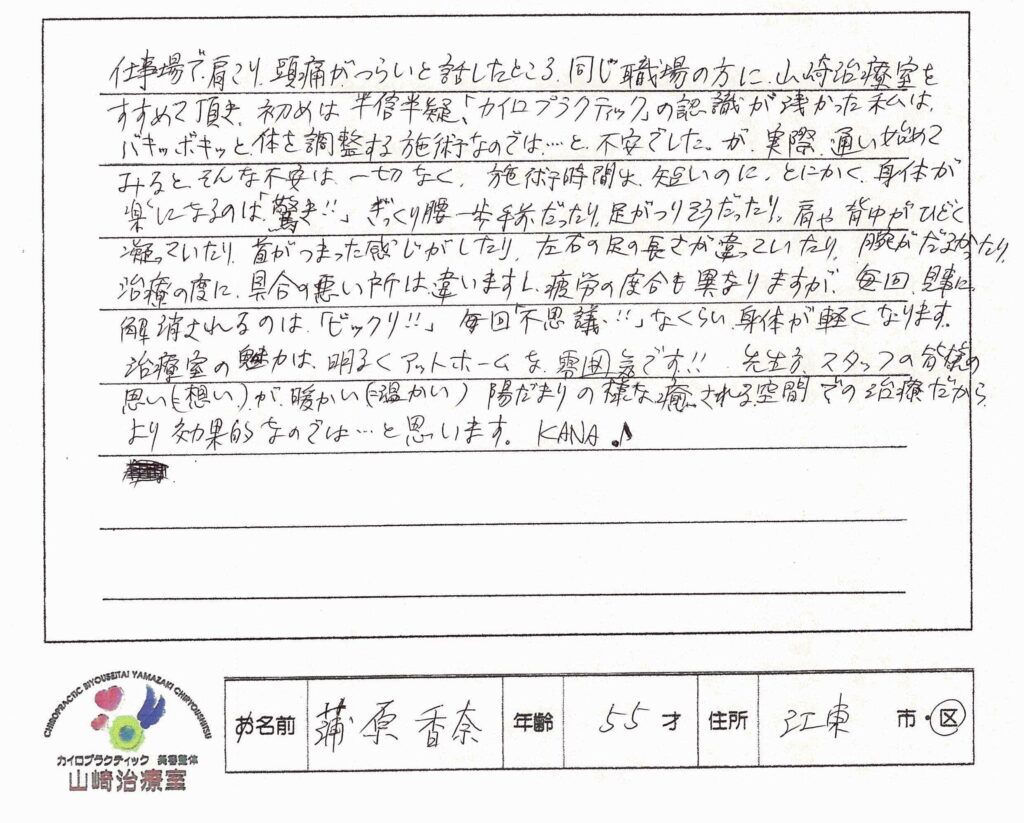 仕事場で肩こり、頭痛がつらいと話したところ、同じ職場の方に、山崎治療室を
すすめて頂き、初めは半信半疑、「カイロプラクティック」の認識が浅かった私は、
バキッボキッと体を調整する施術なのでは…と、不安でした。が、実際、通い始めて
みると、そんな不安は、一切なく、施術時間は、短いのに、とにかく、身体が
楽になるのは、「驚き!!」ぎっくり腰一歩手前だったり、足がつりそうだったり、肩や背中がひどく
凝っていたり、首がつまった感じがしたり、左右の足の長さが違っていたり、腕がだるかったり、
治療の度に、具合の悪い所は違いますし、疲労の度合も異なりますが、毎回、見事に
解消されるのは、「ビックリ!!」毎回「不思議!!」なくらい、身体が軽くなります。
治療室の魅力は、明るくアットホームな雰囲気です!!先生方、スタッフの皆様の
思い(=想い)が、暖かい(=温かい)陽だまりの様な癒される空間での治療だから、
より効果的なのでは…と思います。KANA♪
CHIROPRACTIC BIYOUSEITAI YAMAZAKI CHIRYOUSHITSU
カイロプラクティック 美容整体
山崎治療室
お名前 蒲原香奈 年齢 55才 住所 江東 市・区